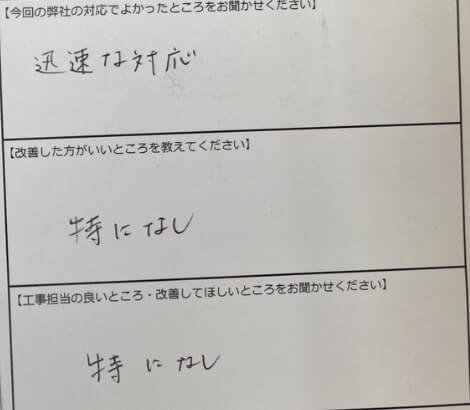 【今回の弊社の対応でよかったところをお聞かせください】
迅速な対応
【改善した方がいいところを教えてください】
特になし
【工事担当の良いところ・改善してほしいところをお聞かせください】
特になし